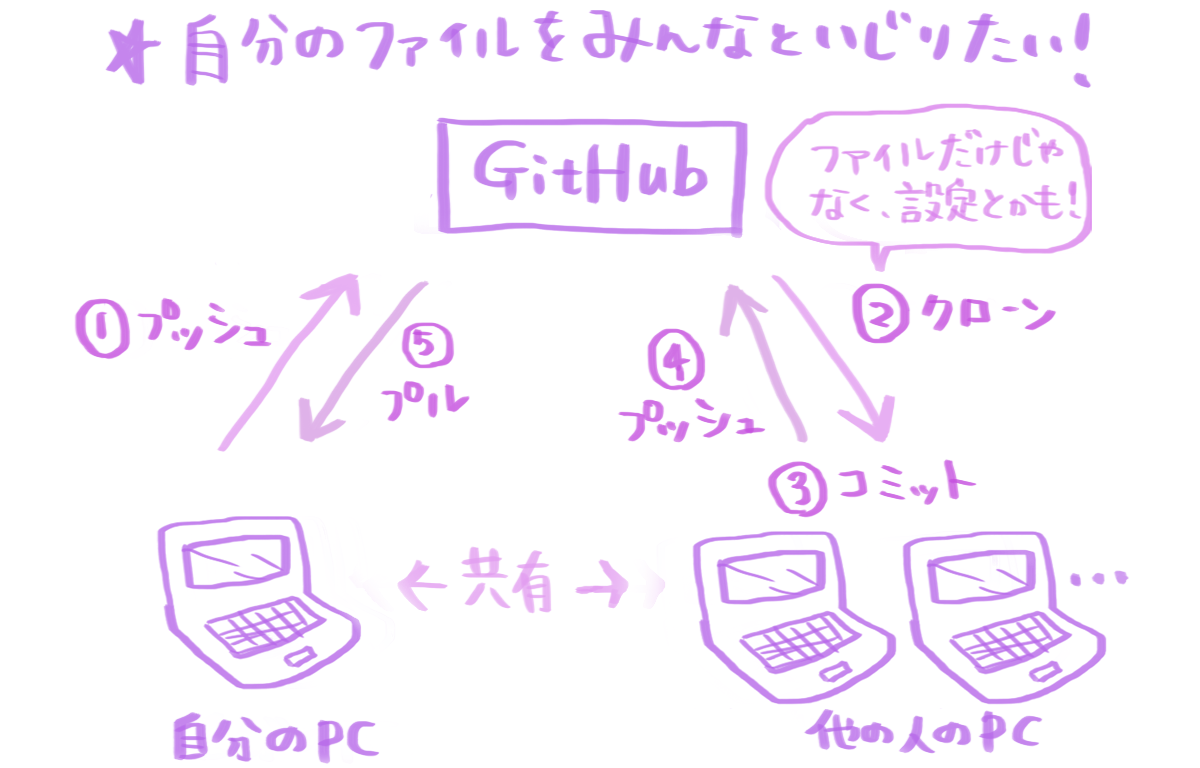 ★自分のファイルをみんなといじりたい!
GitHub
ファイルだけじゃ
なく、設定とかも!
①プッシュ
⑤
プル
④
プッシュ
②クローン
③コミット
←共有→
...
自分のPC
他の人のPC